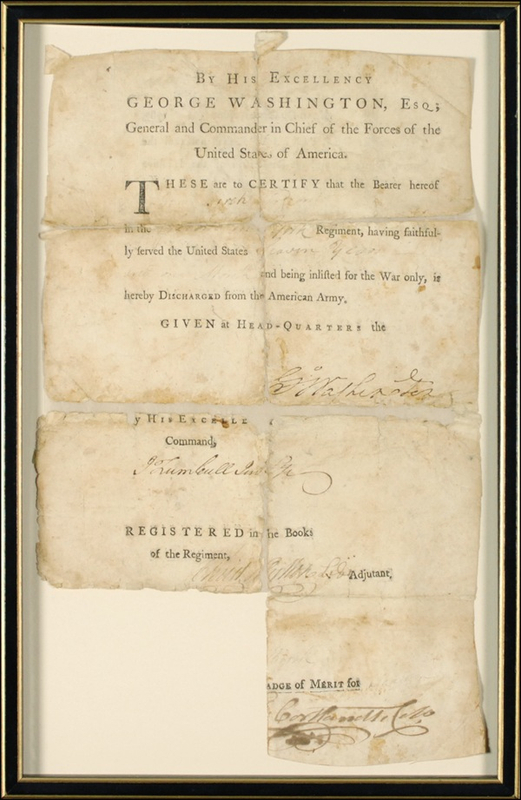 BY HIS EXCELLENCY
GEORGE WASHINGTON, ESQ;
General and Commander in Chief of the Forces of the
United States of America.
THESE are to CERTIFY that the Bearer hereof
in the York Regiment, having faithful-
ly served the United States
and being inlisted for the War only, is
hereby DISCHARGED from the American Army.
GIVEN at HEAD-QUARTERS the
Go Washington
y HIS EXCELLE
Command,
J Trumbull Jun
REGISTERED in he Books
of the Regiment,
Adjutant,
ADGE of MERIT for
Cortlandt Col